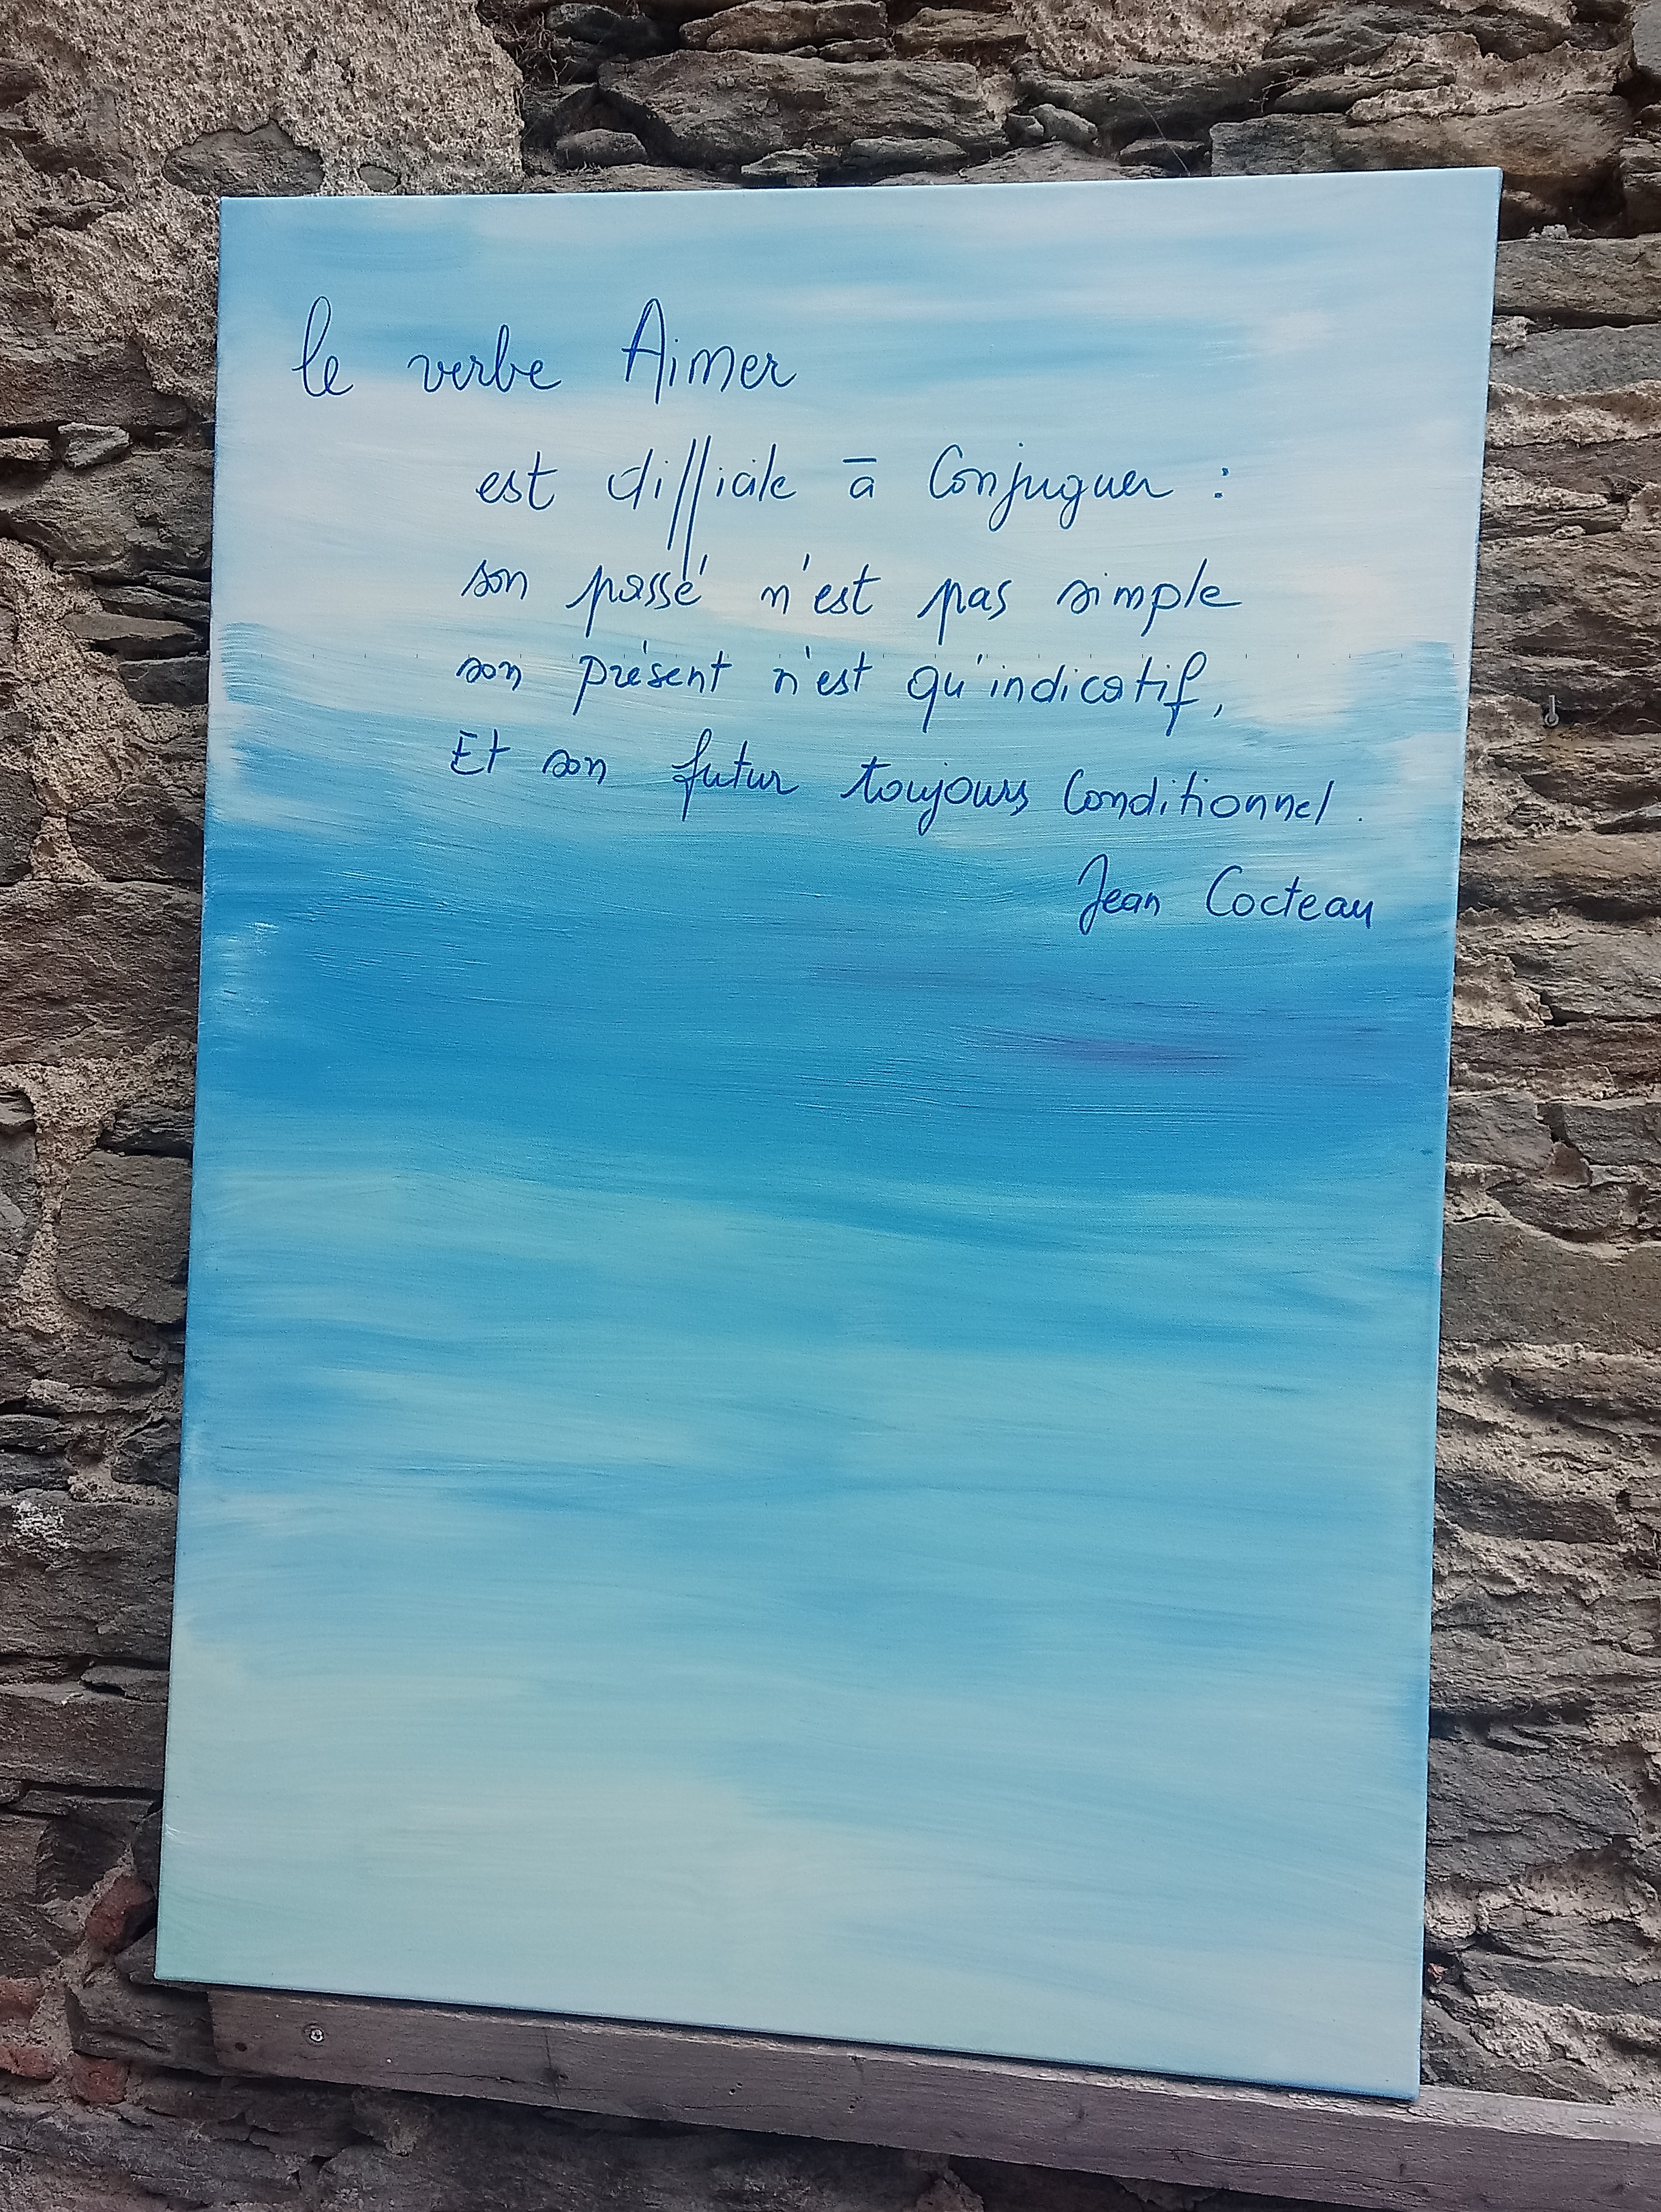 le verbe Aimer
est difficile à Conjuguer :
son passé n'est pas simple
son présent n'est qu'indicatif,
Et son futur toujours Conditionnel.
Jean Cocteau